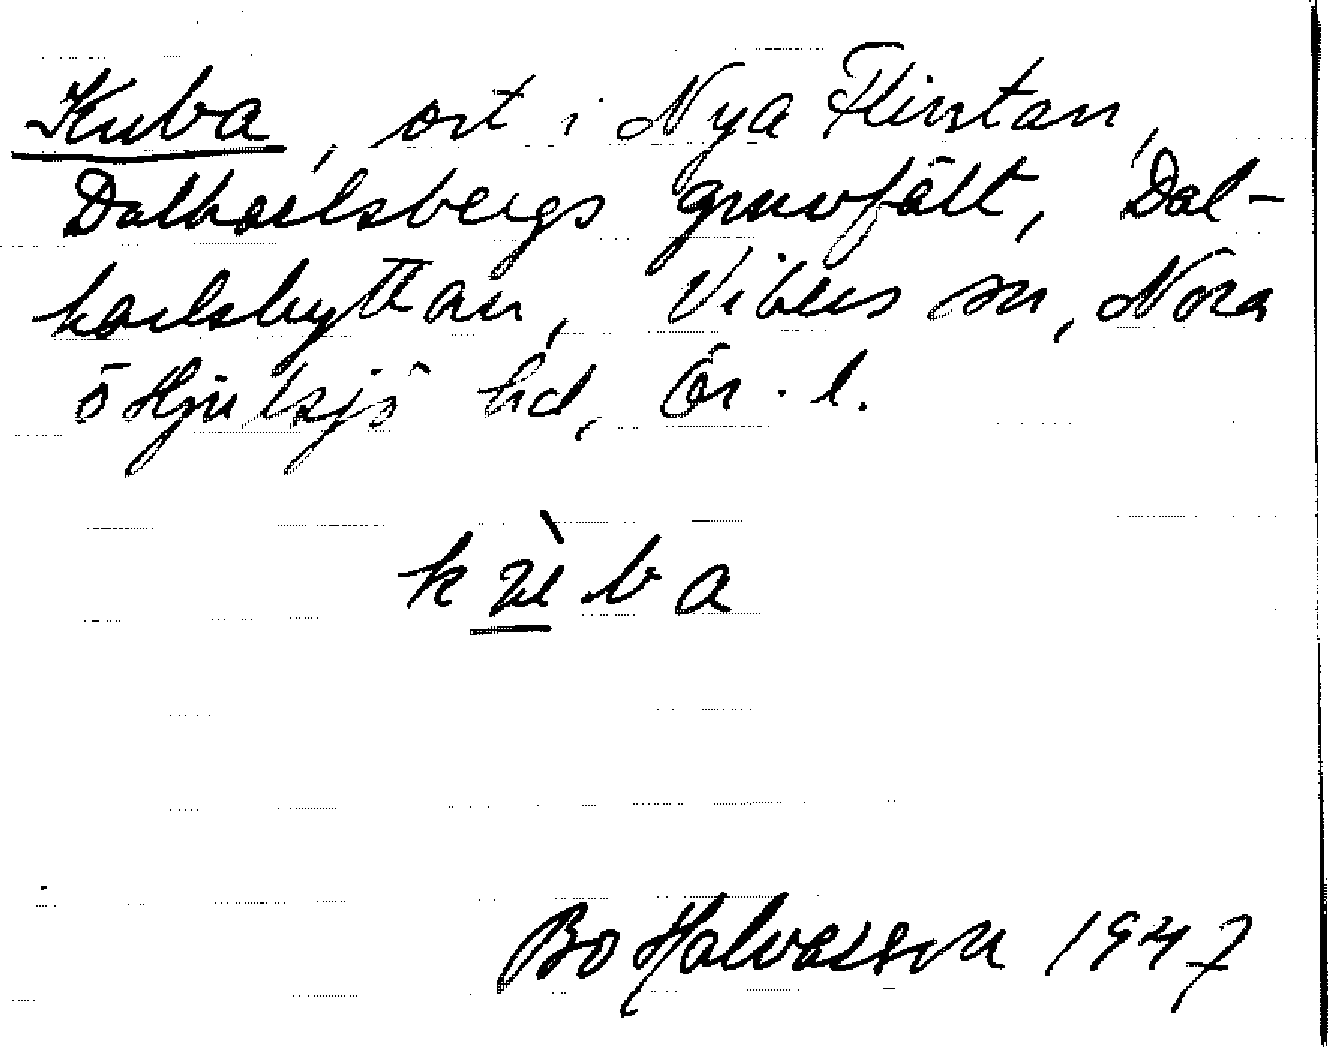 Kuba, ort i Nya Flintan,
Dalkarlsbergs gruvfält, Dal-
karlshyttan, Vikers sn, Nora
o Hjulsjö hd, Ör. l.
kùba
Bo Halvarsson 1947